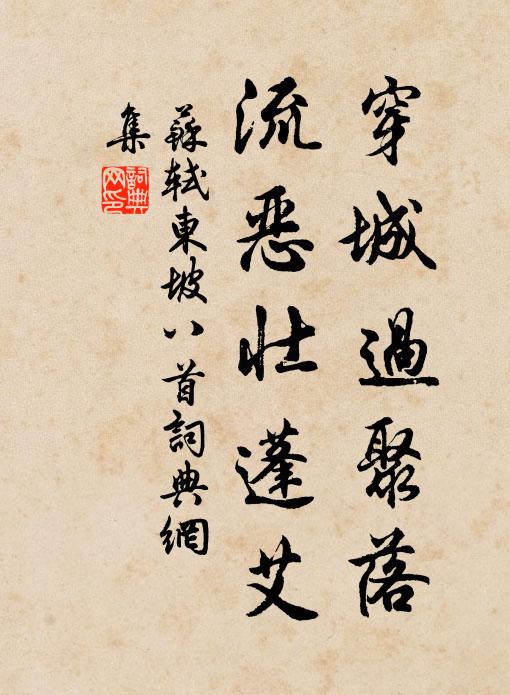 穿城過聚落
流惡壯蓬艾
蘇軾東坡八首詞典網
集
詞典網印